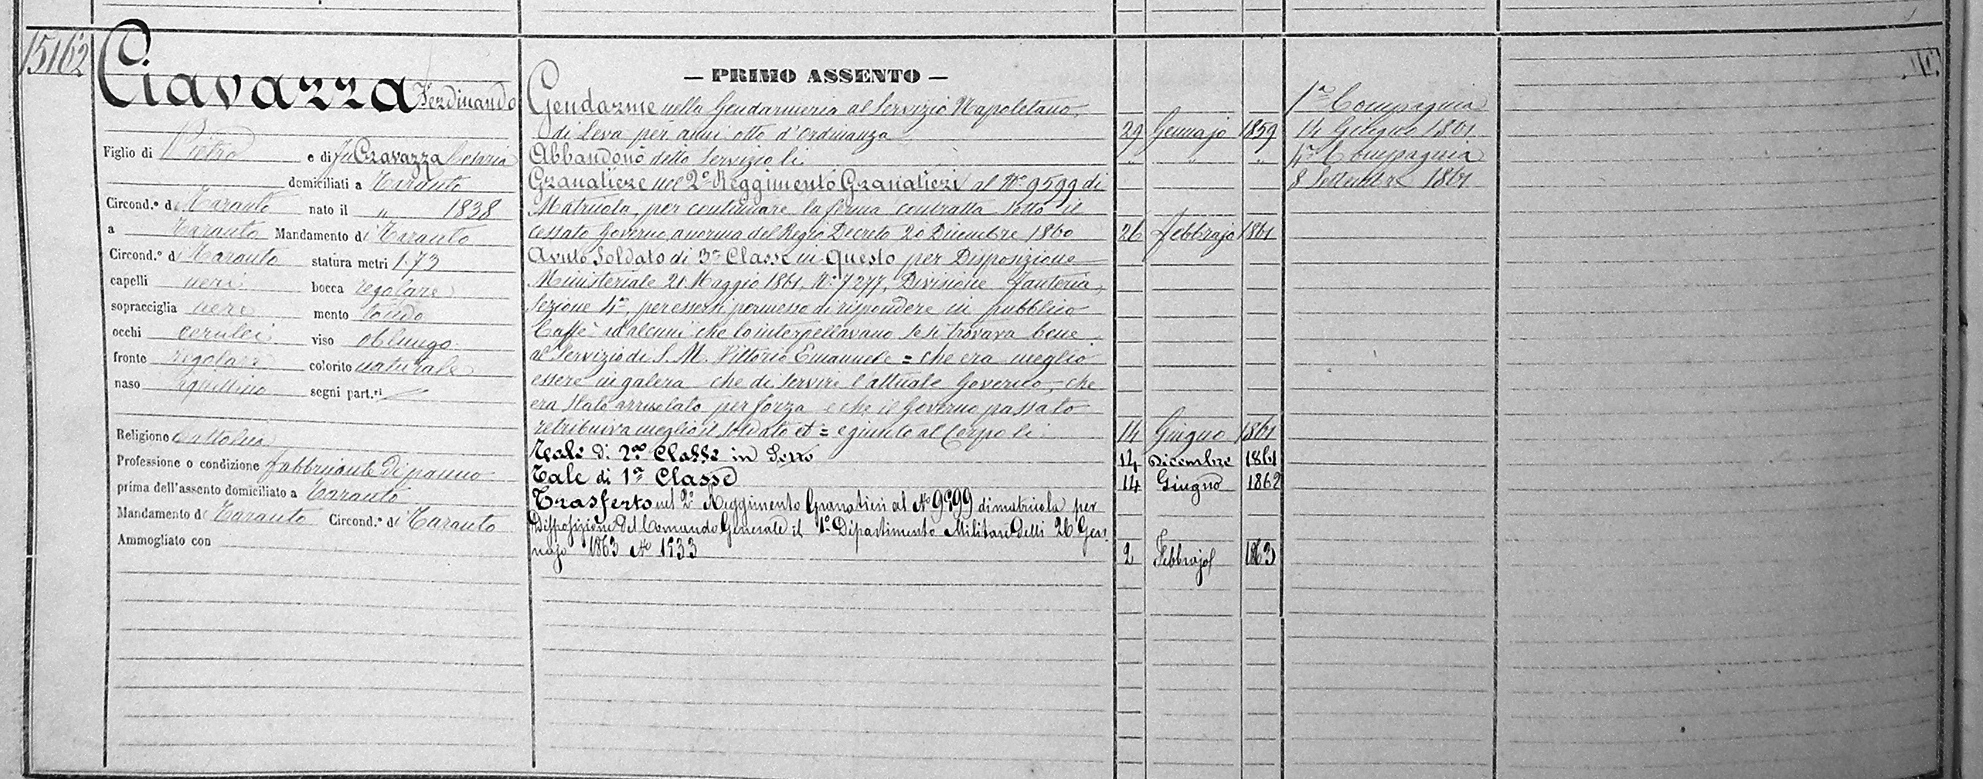 15162
Ciavazza Ferdinando
Figlio di Pietro e di fu Cravazza Cesaria
domiciliati a Taranto
Circond.º di Taranto nato il „ 1838
a Taranto Mandamento di Taranto
Circond.º di Taranto statura metri 1.73
capelli neri bocca regolare
sopracciglia nere mento tondo
occhi cerulei viso oblungo
fronte regolare colorito naturale
naso aquilino segni part.ri
Religione Cattolica
Professione o condizione fabbricante di panno
prima dell'assento domiciliato a Taranto
Mandamento di Taranto Circond.º di Taranto
Ammogliato con
— PRIMO ASSENTO —
Gendarme nella Gendarmeria al Servizio Napoletano,
di Leva per anni otto d'Ordinanza 29 Gennajo 1859
Abbandonò detto Servizio li „ „ „
Granatiere nel 2º Reggimento Granatieri al Nº 9599 di
Matricola, per continuare la ferma contratta sotto il
cessato Governo, a norma del Regio Decreto 20 Dicembre 1860 26 Febbrajo 1861
Avuto Soldato di 3ª Classe in Questo per Disposizione
Ministeriale 21 Maggio 1861, Nº 7277, Divisione Fanteria,
Sezione 4ª, per essersi permesso di rispondere in pubblico
Caffè ad alcuni che lo interpellavano se si trovava bene
al Servizio di S. M. Vittorio Emanuele = che era meglio
essere in galera che di servire l'attuale Governo, che
era stato arruolato per forza e che il Governo passato
retribuiva meglio il soldato = e giunto al Corpo li 14 Giugno 1861
Tale di 2ª Classe in 14 Dicembre 1861
Tale di 1ª Classe 14 Giugno 1862
Trasferto nel 2º Reggimento Granatieri al Nº 9999 di matricola per
Disposizione del Comando Generale il 1º Dipartimento Militare delli 26 Gen
najo 1863 Nº 1933 2 Febbrajo 1863
1ª Compagnia
14 Giugno 1861
4ª Compagnia
8 Settembre 1861